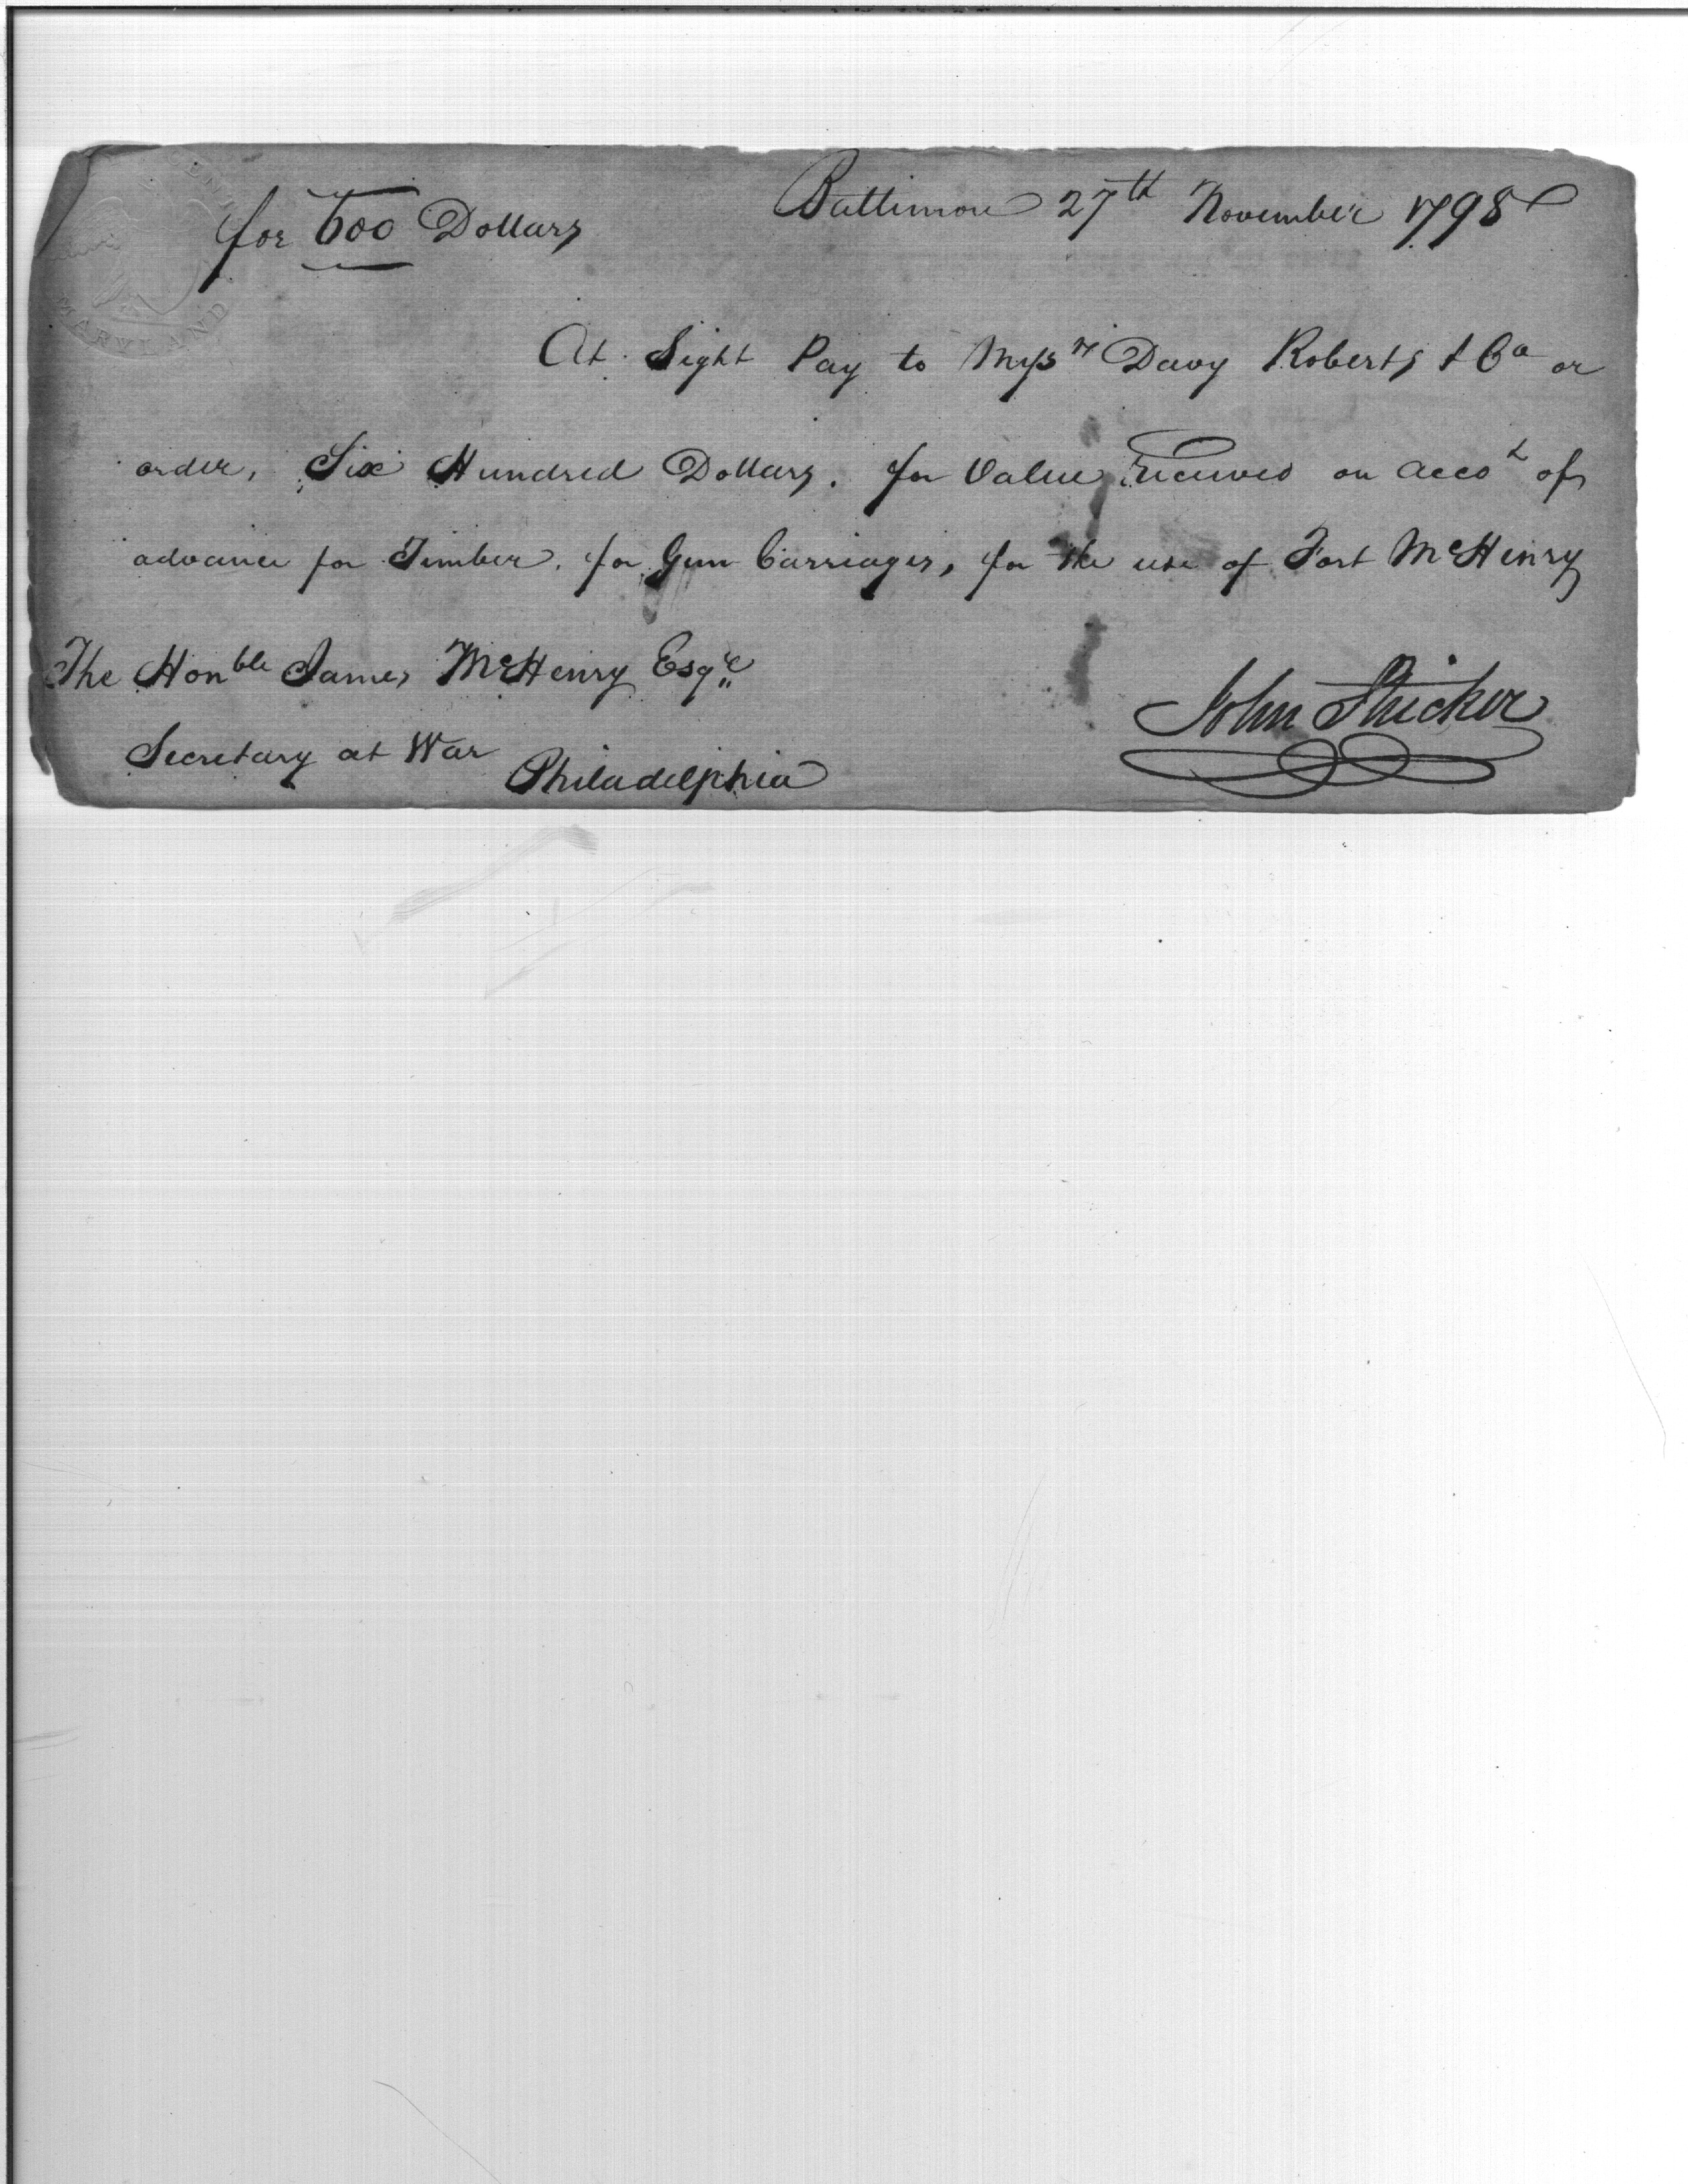 for 600 Dollars
Baltimore 27th November 1798
At Sight Pay to Messrs Davy Roberts & Co or
order, Six Hundred Dollars. for Value received on acco t of
advance for Timber. for Gun Carriages, for the use of Fort McHenry
The Honble James McHenry Esqre
Secretary at War
Philadelphia
John Stricker
MARYLAND